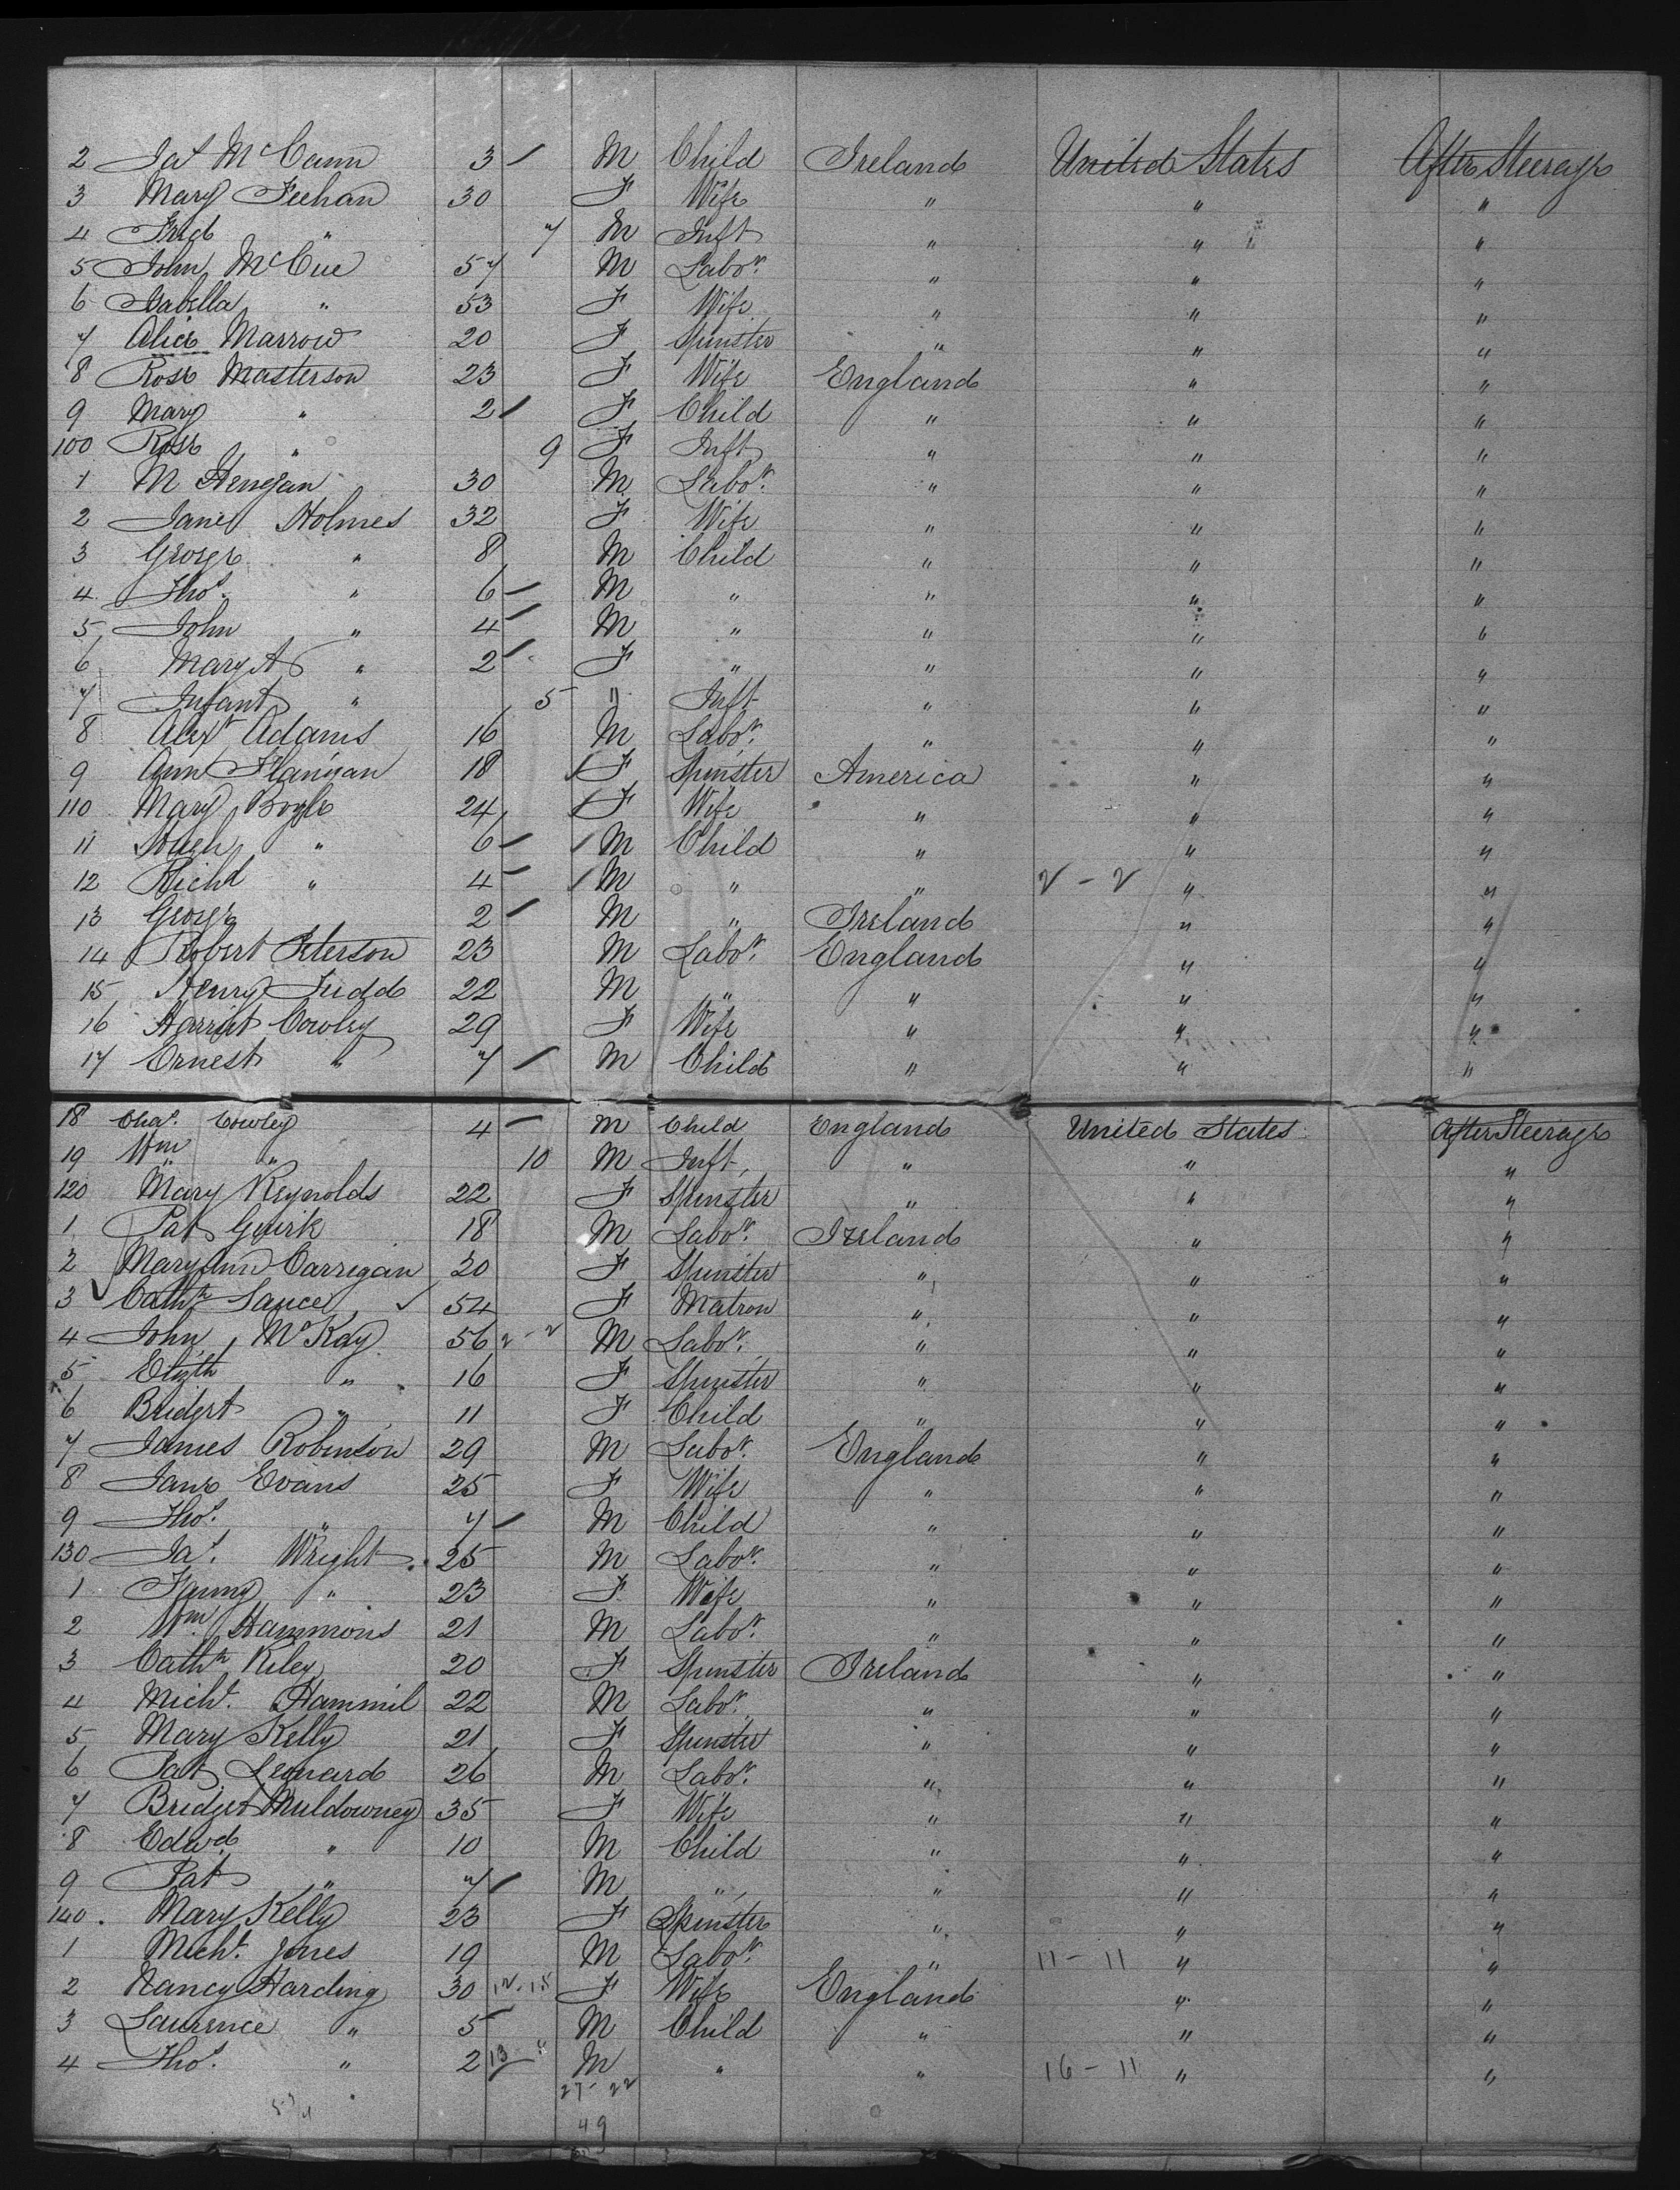 2 Jas McCann 3 M Child Ireland United States After Steerage
3 Mary Feehan 30 F Wife " " "
4 Fred " 7 M Inft " " "
5 John McCue 57 M Labor. " " "
6 Isabella " 53 F Wife " " "
7 Alice Marrow 20 F Spinster " " "
8 Rose Masterson 23 F Wife England " "
9 Mary " 2 F Child " " "
100 Rose " 9 F Inft " " "
1 M Henegan 30 M Labor. " " "
2 Jane Holmes 32 F Wife " " "
3 George " 8 M Child " " "
4 Thos. " 6 M " " " "
5 John " 4 M " " " "
6 Mary A " 2 F " " " "
7 Infant " 5 " Inft " " "
8 Alexr Adams 16 M Labor. " " "
9 Ann Flanigan 18 F Spinster America " "
110 Mary Boyle 24 F Wife " " "
11 Hugh " 6 M Child " " "
12 Richd " 4 M " " 2 - 2 " "
13 George 2 M " Ireland " "
14 Robert Peterson 23 M Labor. England " "
15 Henry Judd 22 M " " " "
16 Harriet Cowley 29 F Wife " " "
17 Ernest " 7 M Child " " "
18 Chas. Cowley 4 M Child England United States After Steerage
19 Wm " 10 M Inft " " "
120 Mary Reynolds 22 F Spinster " " "
1 Pat Quirk 18 M Labor. Ireland " "
2 Mary Ann Carrigan 20 F Spinster " " "
3 Cathn Lance 54 F Matron " " "
4 John McKay 56 2 - 2 M Labor. " " "
5 Elizth " 16 F Spinster " " "
6 Bridget " 11 F Child " " "
7 James Robinson 29 M Labor. England " "
8 Jane Evans 25 F Wife " " "
9 Thos. " 7 M Child " " "
130 Jas. Wright 25 M Labor. " " "
1 Fanny " 23 F Wife " " "
2 Wm. Hammons 21 M Labor. " " "
3 Cathn Riley 20 F Spinster Ireland " "
4 Michl. Hammil 22 M Labor. " " "
5 Mary Kelly 21 F Spinster " " "
6 Pat Leonard 26 M Labor. " " "
7 Bridget Muldowney 35 F Wife " " "
8 Edwd. " 10 M Child " " "
9 Pat " 7 M " " " "
140. Mary Kelly 23 F Spinster " " "
1 Michl. Jones 19 M Labor. " 11 - 11 " "
2 Nancy Harding 30 F Wife England " "
3 Laurence " 5 M Child " " "
4 Thos. " 2 13 M " " 16 - 11 " "
27 - 22
49